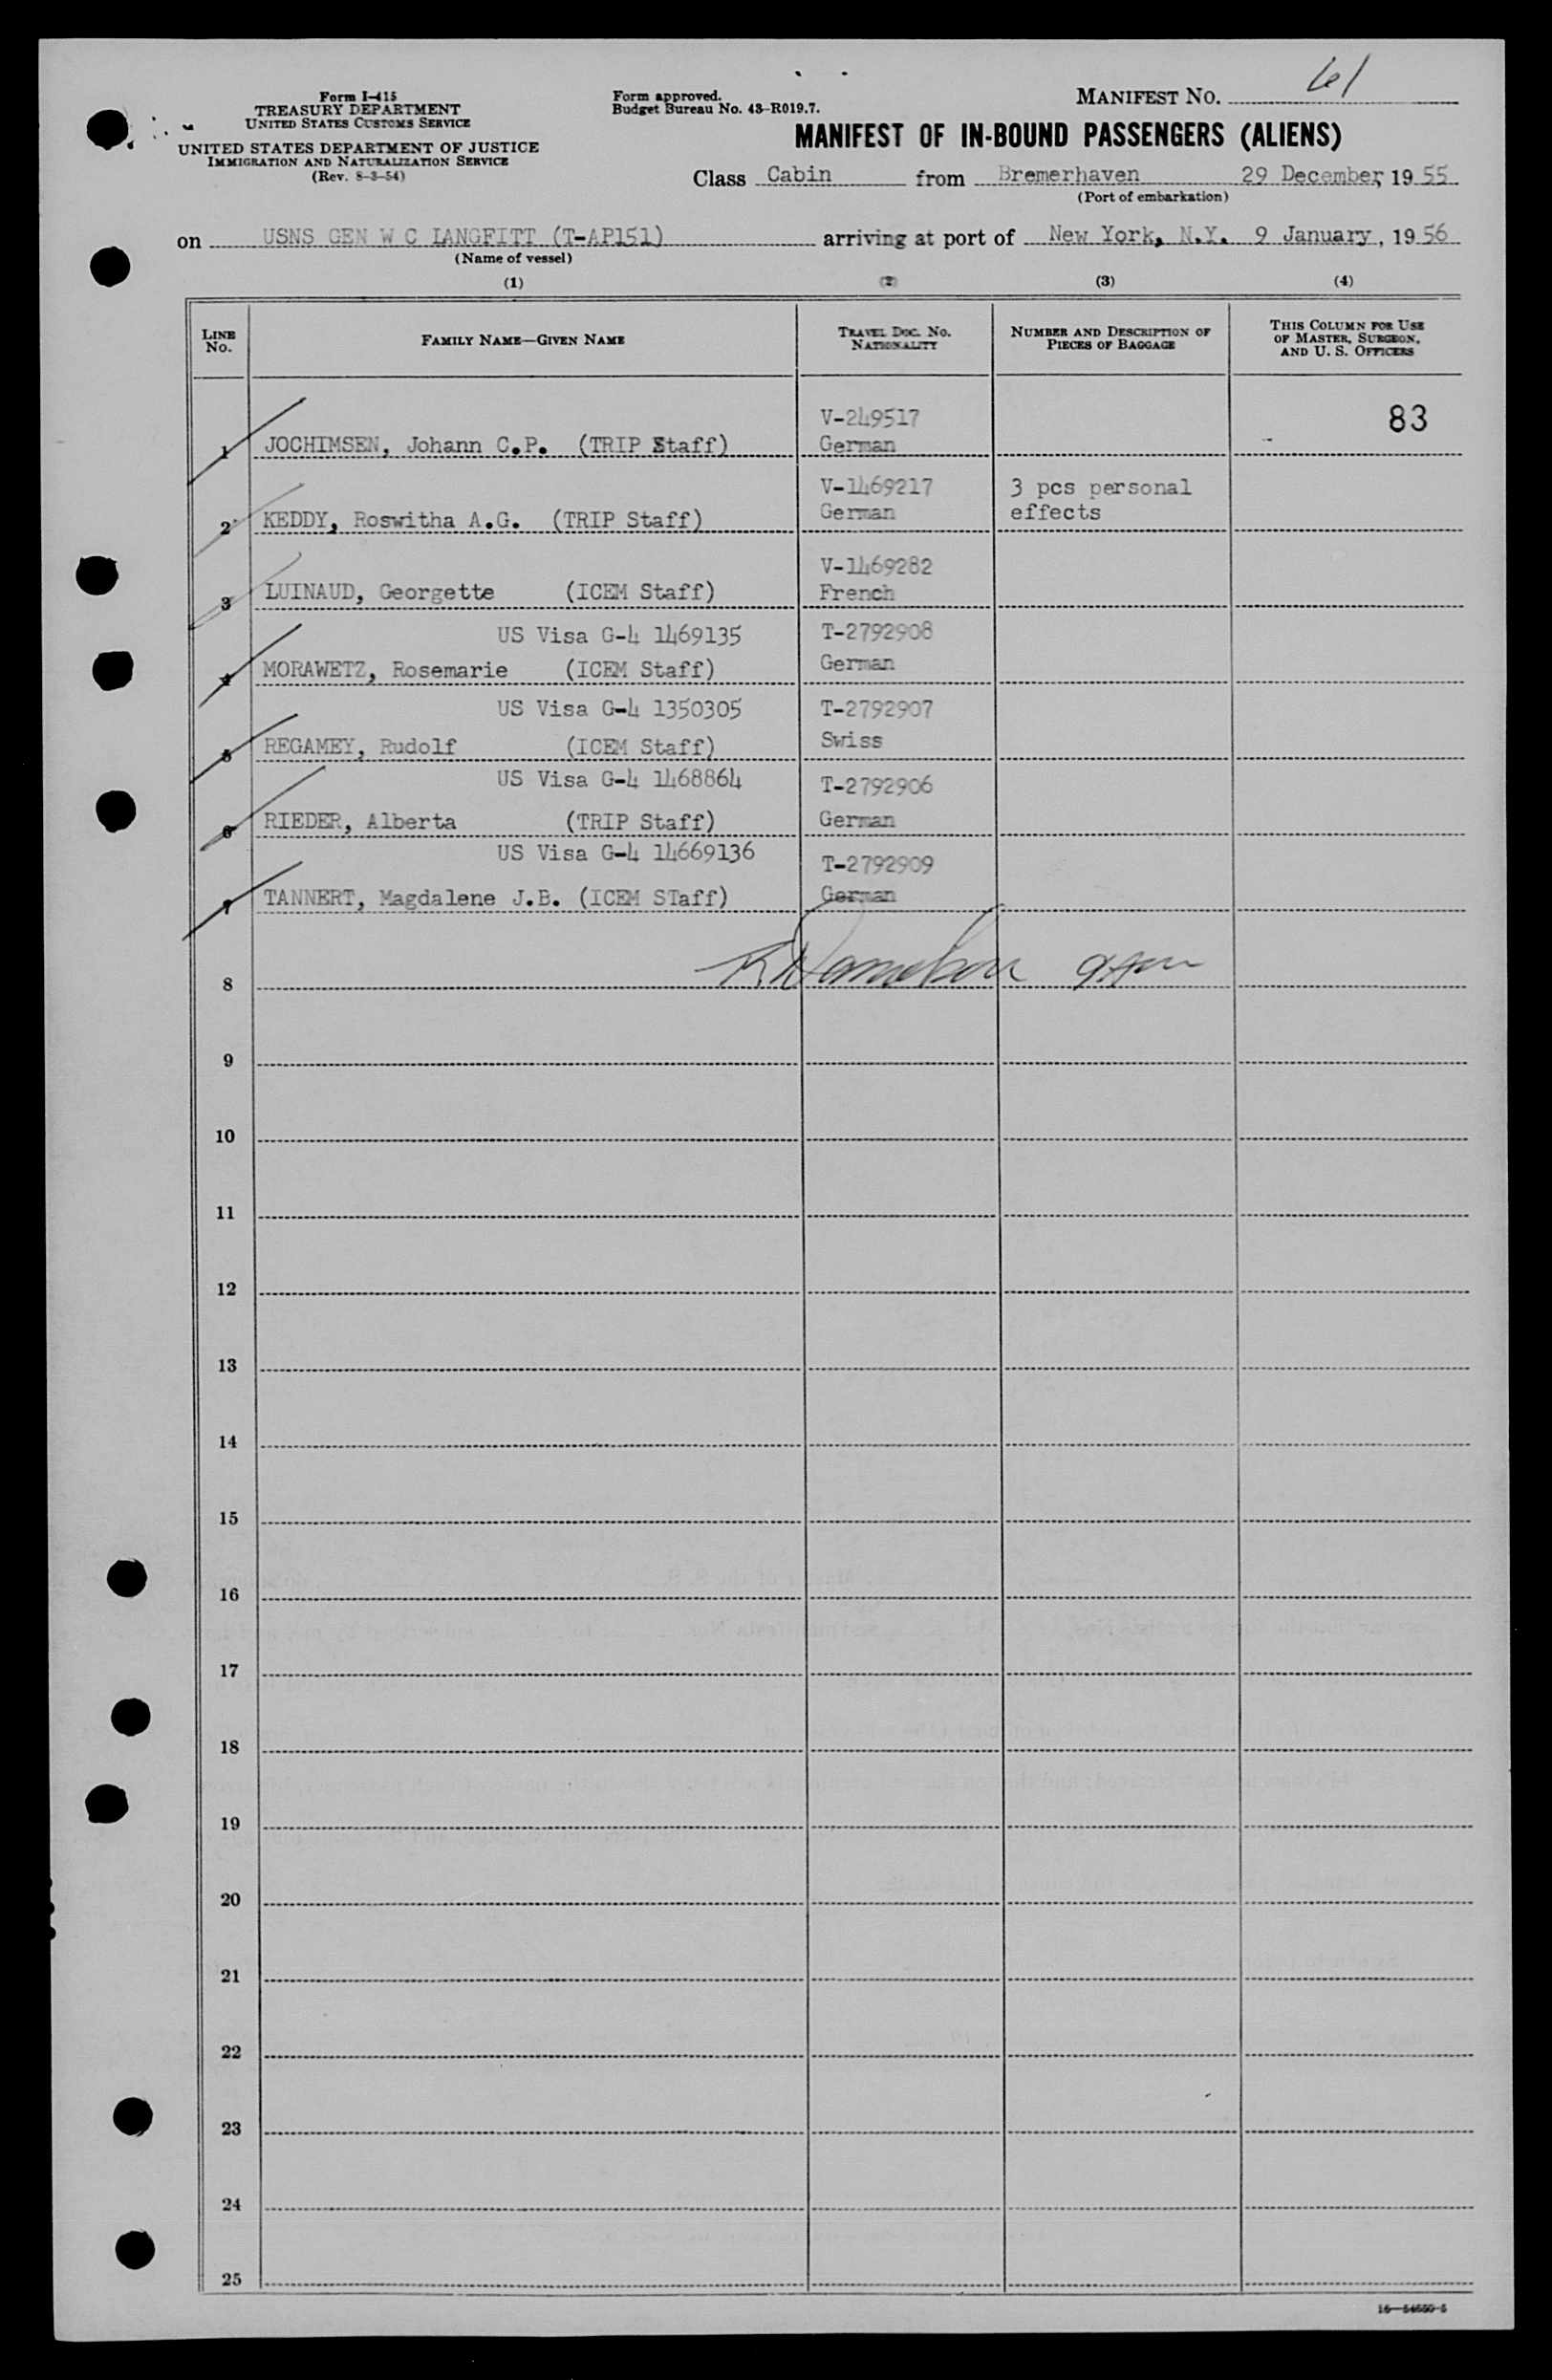 Form I-415
TREASURY DEPARTMENT
UNITED STATES CUSTOMS SERVICE
UNITED STATES DEPARTMENT OF JUSTICE
IMMIGRATION AND NATURALIZATION SERVICE
(Rev. 8-3-54)
Form approved.
Budget Bureau No. 43-R019.7.
MANIFEST NO. 61
MANIFEST OF IN-BOUND PASSENGERS (ALIENS)
Class Cabin from Bremerhaven 29 December, 1955
(Port of embarkation)
on USNS GEN W C LANGFITT (T-AP151) arriving at port of New York, N.Y. 9 January, 1956
(Name of vessel)
(1) (2) (3) (4)
LINE No. FAMILY NAME—GIVEN NAME TRAVEL DOC. NO. NATIONALITY NUMBER AND DESCRIPTION OF PIECES OF BAGGAGE THIS COLUMN FOR USE OF MASTER, SURGEON, AND U. S. OFFICERS
V-249517 83
1 JOCHIMSEN, Johann C.P. (TRIP Staff) German
V-1469217 3 pcs personal
2 KEDDY, Roswitha A.G. (TRIP Staff) German effects
V-1469282
3 LUINAUD, Georgette (ICEM Staff) French
US Visa G-4 1469135 T-2792908
4 MORAWETZ, Rosemarie (ICEM Staff) German
US Visa G-4 1350305 T-2792907
5 REGAMEY, Rudolf (ICEM Staff) Swiss
US Visa G-4 1468864 T-2792906
6 RIEDER, Alberta (TRIP Staff) German
US Visa G-4 14669136 T-2792909
7 TANNERT, Magdalene J.B. (ICEM STaff) German
8
9
10
11
12
13
14
15
16
17
18
19
20
21
22
23
24
25